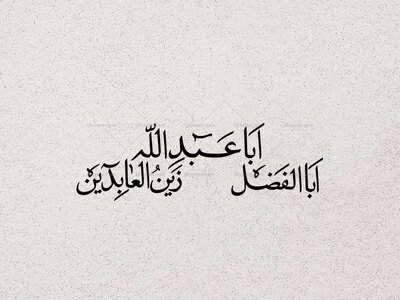 اَبا عَبدِ اللّٰه
اَبَا الفَضل زَینُ العٰابِدین